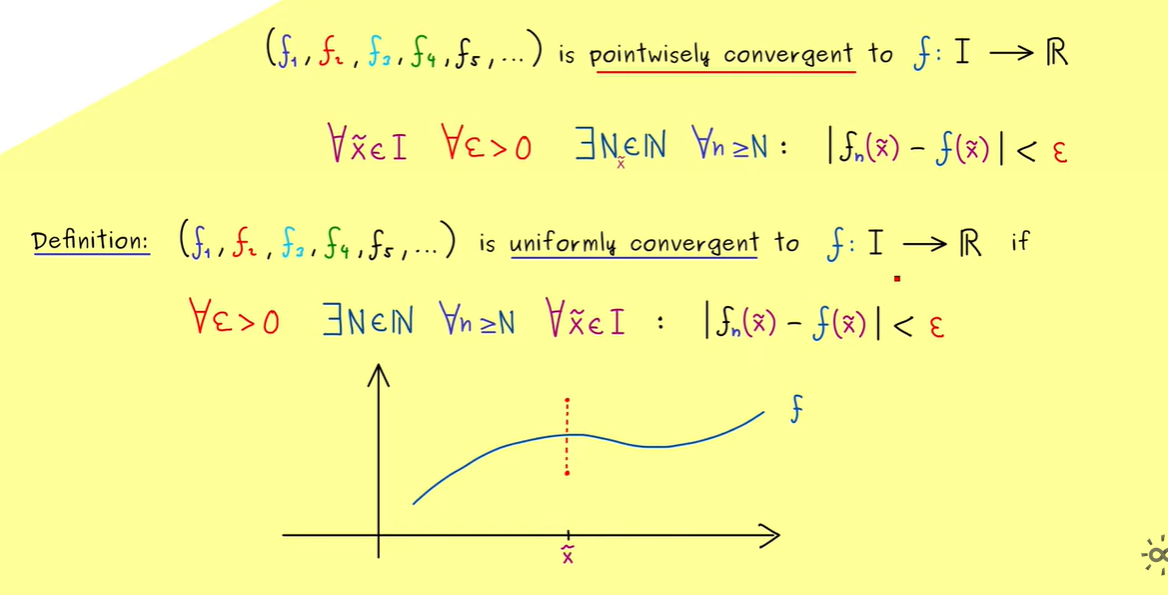 (f₁, f₂, f₃, f₄, f₅, ...) is pointwisely convergent to f: I → ℝ
∀x̃∈I ∀ε>0 ∃N_x̃∈ℕ ∀n≥N: |fₙ(x̃) - f(x̃)| < ε
Definition: (f₁, f₂, f₃, f₄, f₅, ...) is uniformly convergent to f: I → ℝ if
∀ε>0 ∃N∈ℕ ∀n≥N ∀x̃∈I : |fₙ(x̃) - f(x̃)| < ε
f
x̃